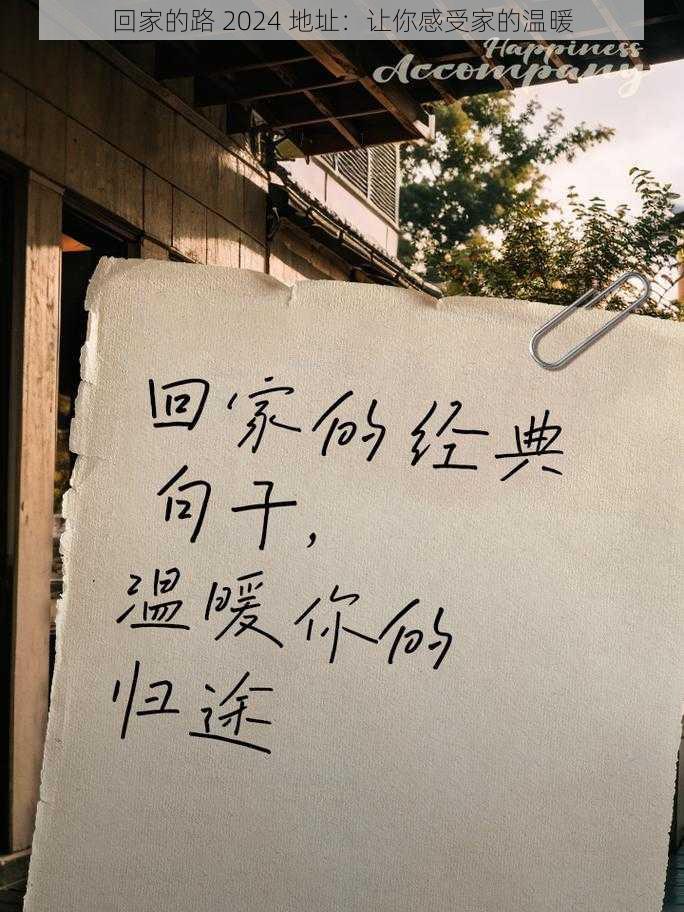 回家的路 2024 地址：让你感受家的温暖
Happiness
Accompany
回家的经典
句子，
温暖你的
归途